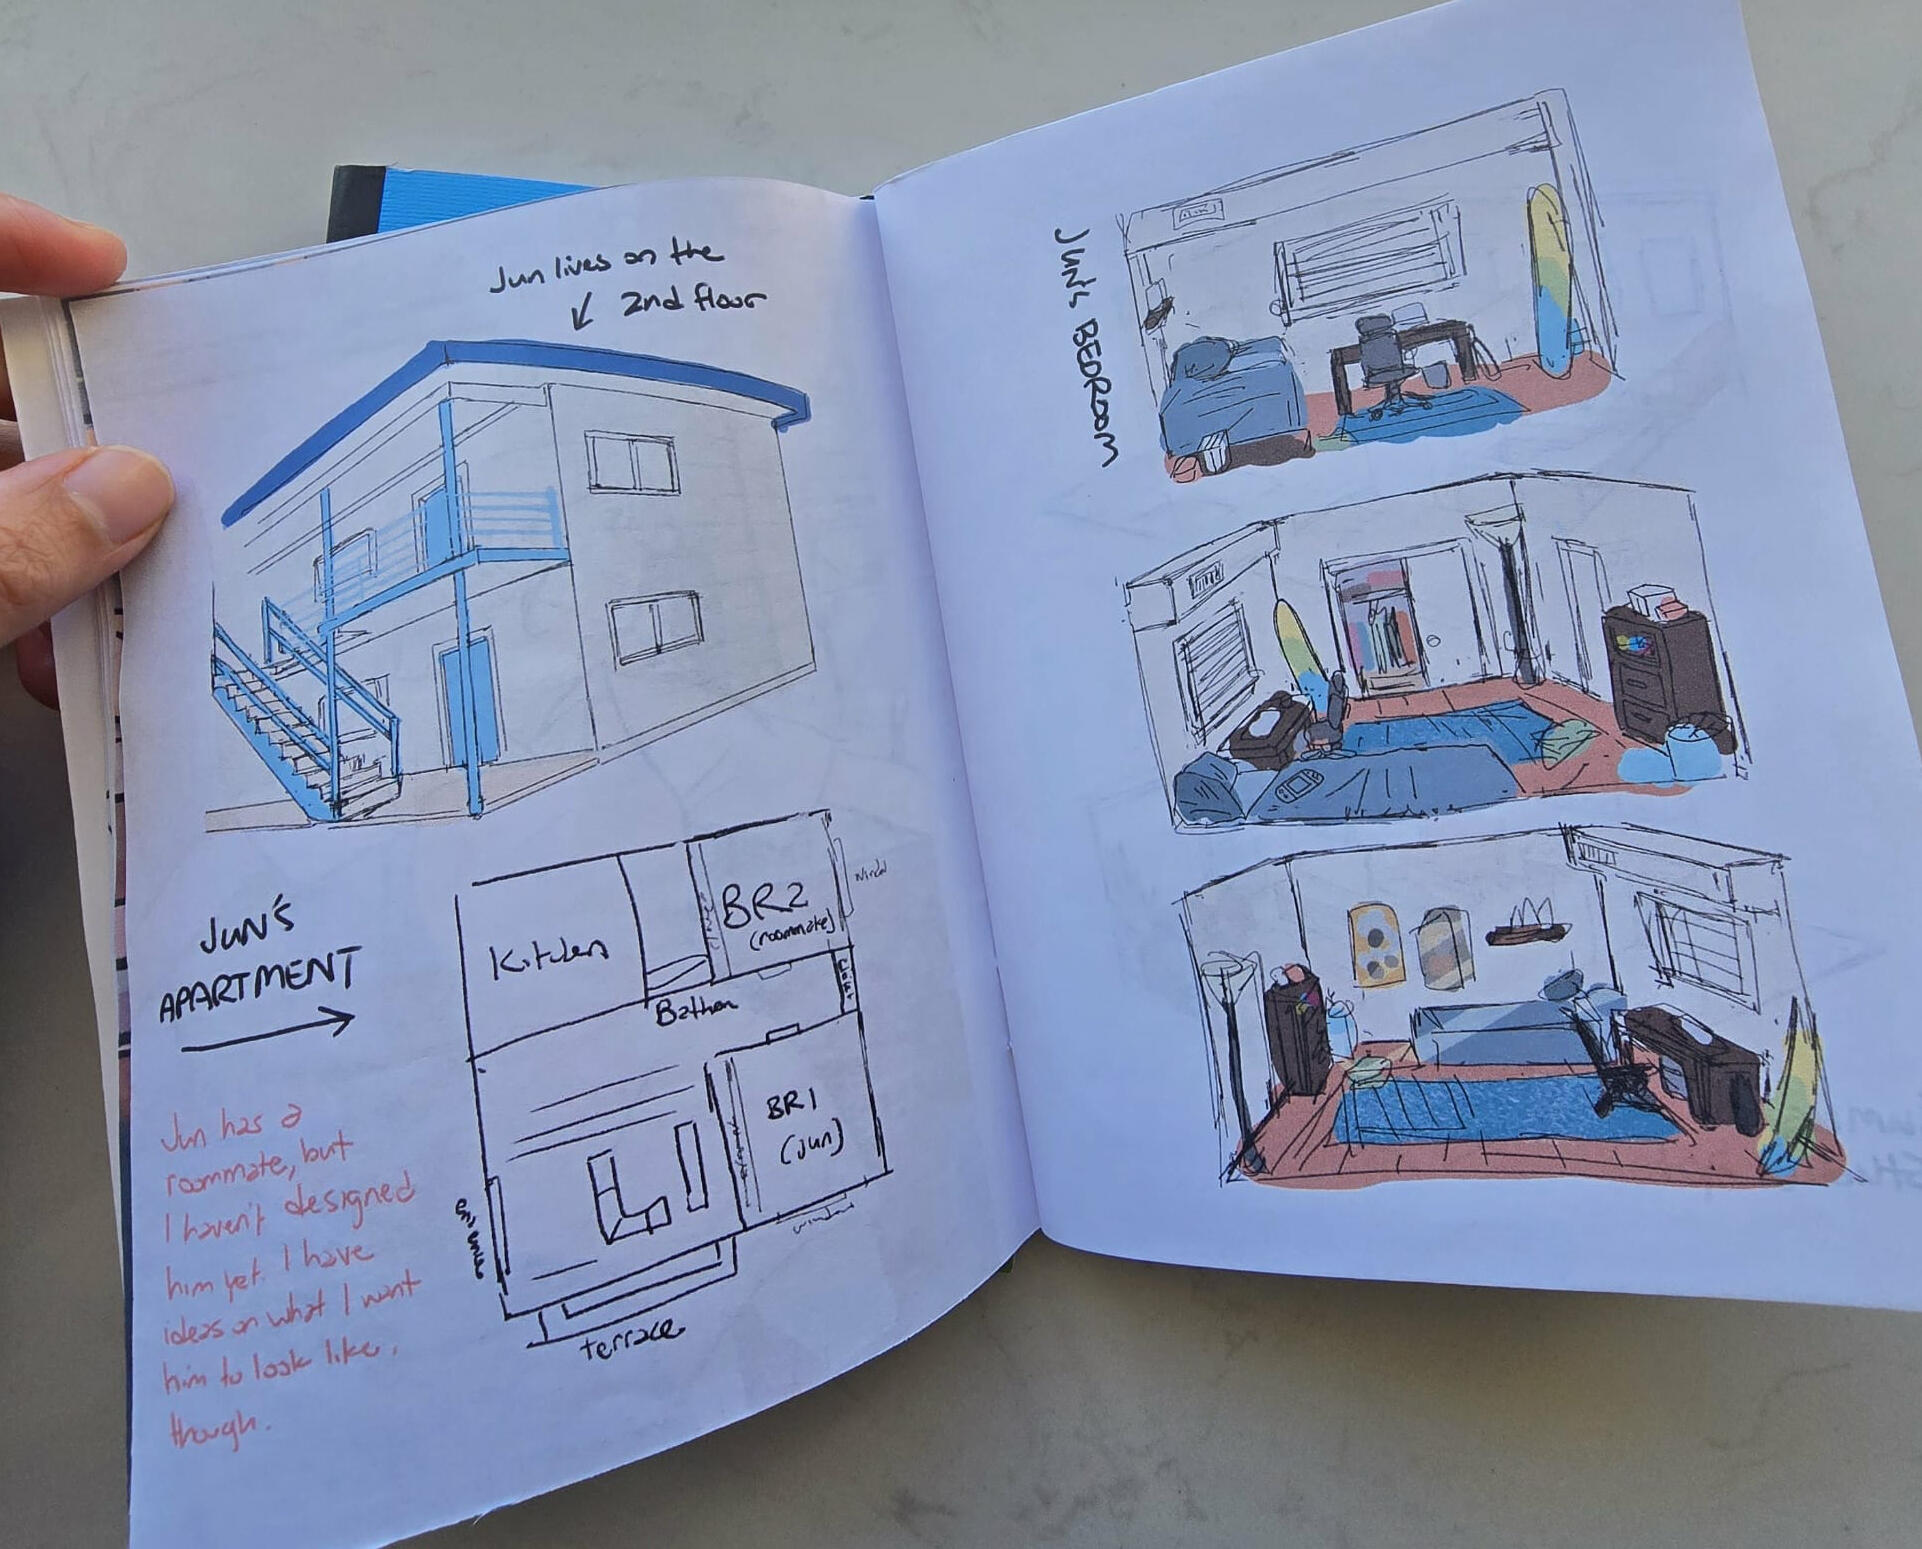 Jun lives on the
2nd floor
JUN's
APARTMENT
Jun has a
roommate, but
I haven't designed
him yet. I have
ideas on what I want
him to look like,
though.
Kitchen
BR2
(roommate)
Bathem
BR1
(Jun)
window
terrace
JUN's BEDROOM